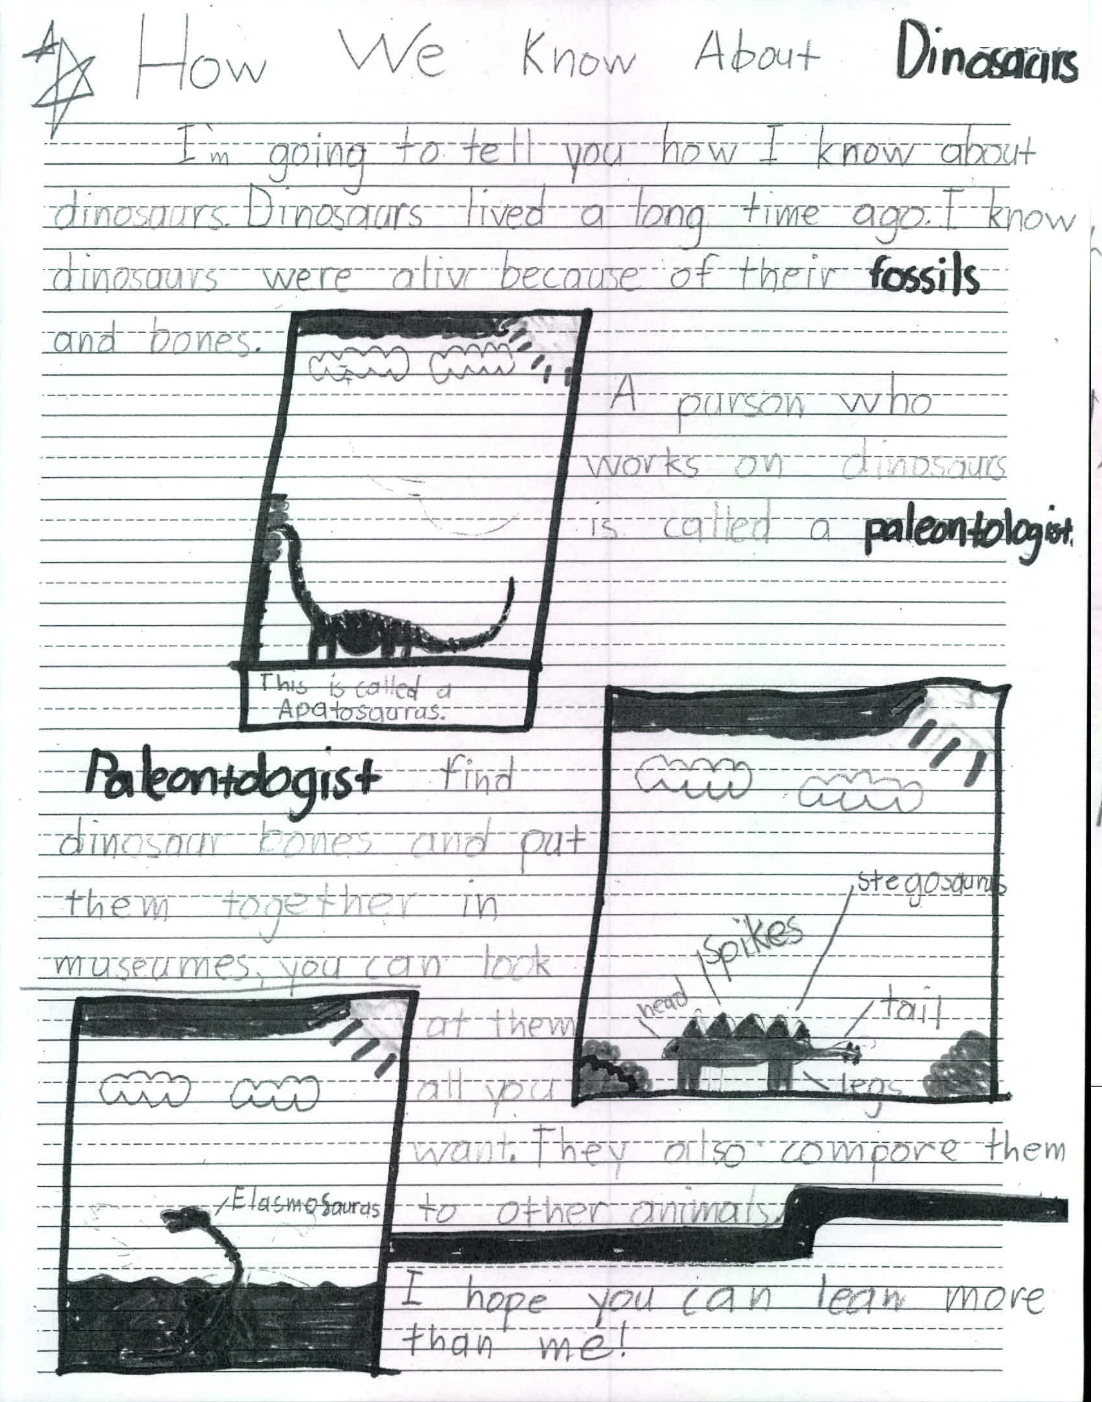 How We Know About Dinosaurs
I'm going to tell you how I know about
dinosaurs. Dinosaurs lived a long time ago. I know
dinosaurs were aliv because of their fossils
and bones.
A purson who
works on dinosaurs
is called a paleontologist.
This is called a
Apatosaurus.
Paleontologist find
dinosaur bones and put
them together in
museumes, you can look
at them
all you
want. They also compare them
to other animals.
stegosaurus
spikes
head
tail
legs
Elasmosaurus
I hope you can lean more
than me!